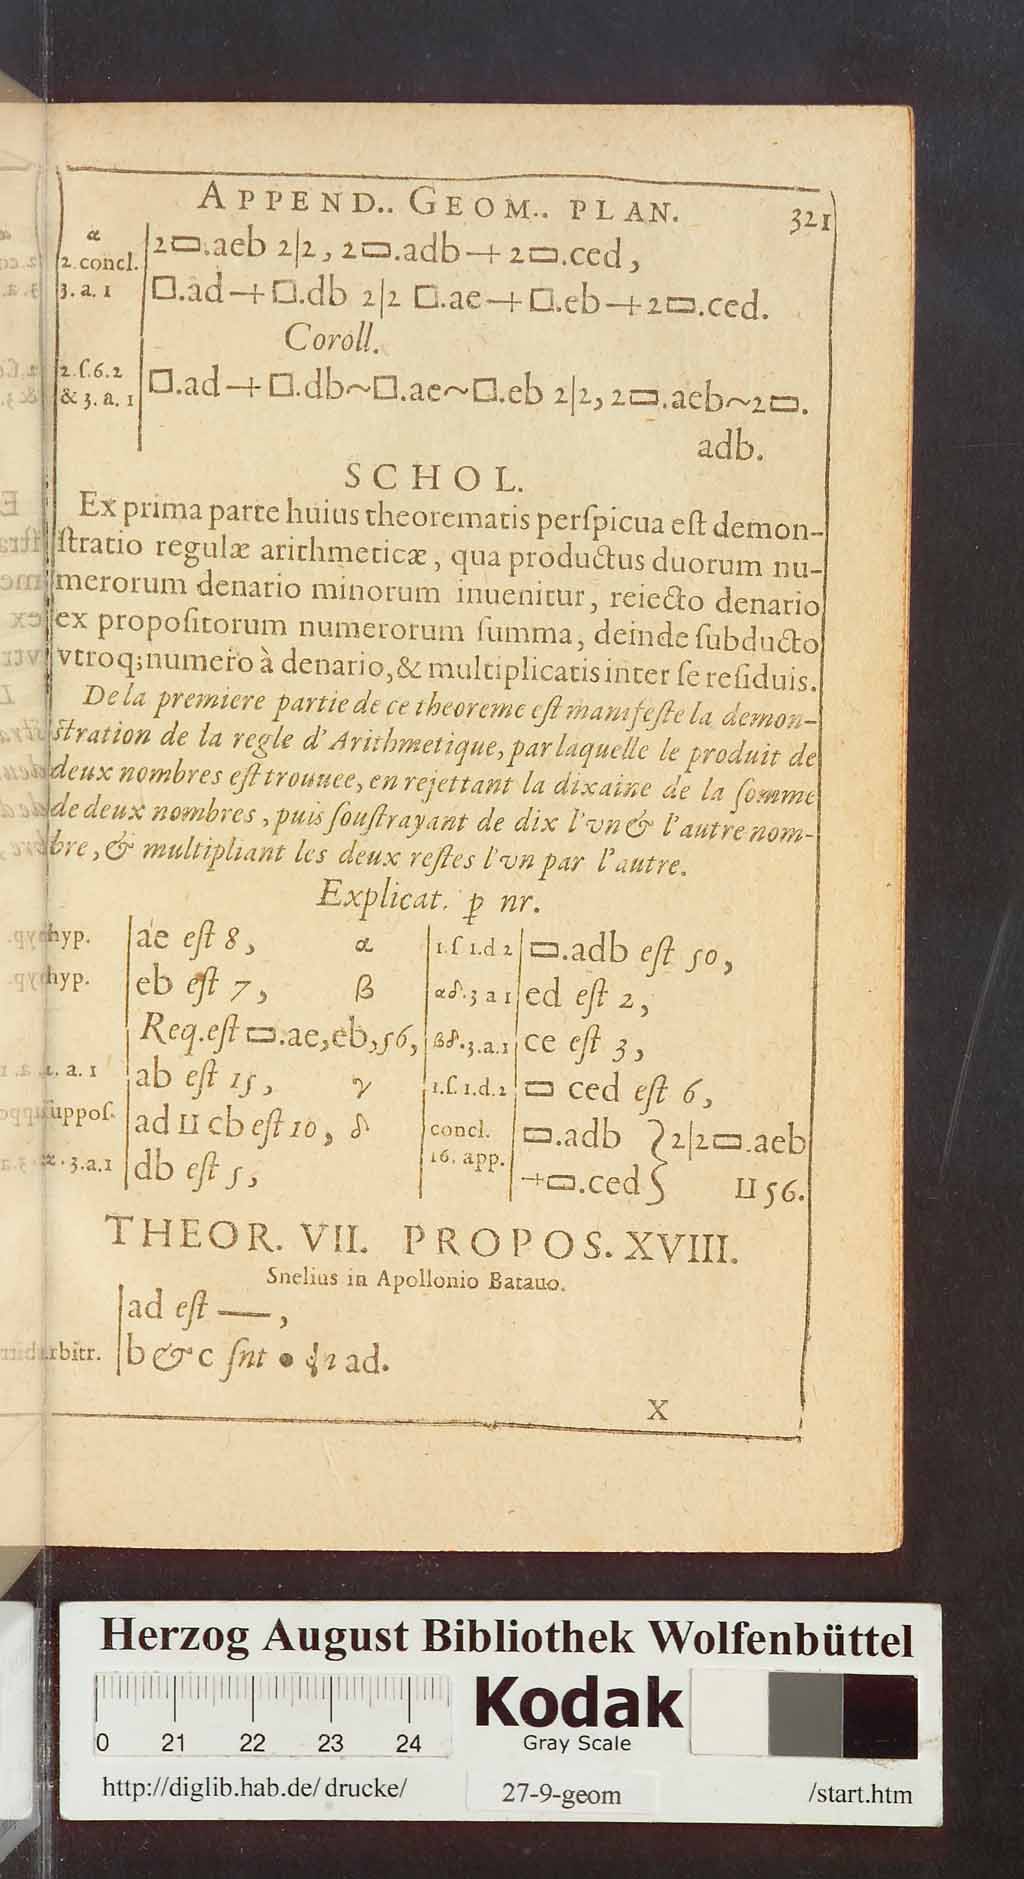 APPEND.. GEOM.. PLAN. 321
α
2. concl. 2▭.aeb 2|2, 2▭.adb + 2▭.ced,
3. a. 1 □.ad + □.db 2|2 □.ae + □.eb + 2▭.ced.
Coroll.
2. ſ. 6. 2
& 3. a. 1 □.ad + □.db ~ □.ae ~ □.eb 2|2, 2▭.aeb ~ 2▭.
adb.
SCHOL.
Ex prima parte huius theorematis perſpicua eſt demon-
ſtratio regulæ arithmeticæ, qua productus duorum nu-
merorum denario minorum inuenitur, reiecto denario
ex propoſitorum numerorum ſumma, deinde ſubducto
vtroq; numero à denario, & multiplicatis inter ſe reſiduis.
De la premiere partie de ce theoreme eſt manifeſte la demon-
ſtration de la regle d'Arithmetique, par laquelle le produit de
deux nombres eſt trouuee, en rejettant la dixaine de la ſomme
de deux nombres, puis ſouſtrayant de dix l'vn & l'autre nom-
bre, & multipliant les deux reſtes l'vn par l'autre.
Explicat. p nr.
hyp. ae eſt 8, α
hyp. eb eſt 7, β
Req. eſt ▭.ae, eb, 56,
1. a. 1 ab eſt 15, γ
ſuppoſ. ad II cb eſt 10, δ
α. 3. a. 1 db eſt 5,
1. ſ 1. d 2 ▭.adb eſt 50,
αδ. 3 a 1 ed eſt 2,
βδ. 3. a. 1 ce eſt 3,
1. ſ. 1. d. 2 ▭ ced eſt 6,
concl. ▭.adb } 2|2 ▭.aeb
16. app. + ▭.ced } II 56.
THEOR. VII. PROPOS. XVIII.
Snelius in Apollonio Batauo.
ad eſt —,
arbitr. b & c ſnt • ad.
X
Herzog August Bibliothek Wolfenbüttel
0 21 22 23 24
Kodak
Gray Scale
http://diglib.hab.de/drucke/ 27-9-geom /start.htm